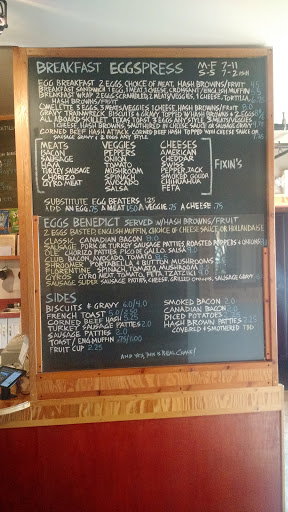 BREAKFAST EGGSPRESS M-F 7-11
S-S 7-2ish
EGG BREAKFAST 2 EGGS, CHOICE OF MEAT, HASH BROWNS/FRUIT
BREAKFAST SANDWICH 1 EGG, 1 MEAT, 1 CHEESE, CROISSANT/ENGLISH MUFFIN
BREAKFAST WRAP 2 EGGS SCRAMBLED, 2 MEATS/VEGGIES, 1 CHEESE, TORTILLA,
HASH BROWNS/FRUIT
OMELETTE 3 EGGS, 3 MEATS/VEGGIES, 1 CHEESE, HASH BROWNS/FRUIT
GRAVY TRAINWRECK BISCUITS & GRAVY TOPPED W/HASH BROWNS & 2 EGGS
ALL ABOARD SKILLET TEXAS TOAST, 3 EGGS ANY STYLE, 3 MEATS/VEGGIES,
1 CHEESE, HASH BROWNS SMOTHERED IN CHEESE OR SAUSAGE GRAVY
CORNED BEEF HASH ATTACK CORNED BEEF HASH TOPPED WITH CHEESE SAUCE OR
SAUSAGE GRAVY & 2 EGGS ANY STYLE
MEATS VEGGIES CHEESES
BACON PEPPERS AMERICAN
SAUSAGE ONION CHEDDAR
HAM TOMATO SWISS
TURKEY SAUSAGE MUSHROOM PEPPER JACK
CHORIZO SPINACH SMOKED GOUDA
GYRO MEAT AVOCADO CHIHUAHUA
SALSA FETA
FIXIN'S
SUBSTITUTE EGG BEATERS 1.25
ADD AN EGG .75 A MEAT 1.50 A VEGGIE .75 A CHEESE .75
EGGS BENEDICT SERVED W/HASH BROWNS/FRUIT
2 EGGS BASTED, ENGLISH MUFFIN, CHOICE OF CHEESE SAUCE OR HOLLANDAISE
CLASSIC CANADIAN BACON
SAUSAGE PORK OR TURKEY SAUSAGE PATTIES, ROASTED PEPPERS & ONIONS
OLE CHORIZO PATTIES, PICO DE GALLO, SALSA
CLUB BACON, AVOCADO, TOMATO
SHROOMER PORTABELLA & BUTTON MUSHROOMS
FLORENTINE SPINACH, TOMATO, MUSHROOM
GYROS GYRO MEAT, TOMATO, FETA, TZATZIKI
SAUSAGE SUPER SAUSAGE PATTIES, CHEESE, GRILLED ONIONS, SAUSAGE GRAVY
SIDES
BISCUITS & GRAVY 6.0/4.0 SMOKED BACON 2.0
FRENCH TOAST CANADIAN BACON 2.0
CORNED BEEF HASH DICED POTATOES
TURKEY SAUSAGE PATTIES 2.0 HASH BROWN PATTIES 2.25
SAUSAGE PATTIES 2.0 COVERED & SMOTHERED TBD
TOAST/ENG MUFFIN .75/1.00
FRUIT CUP 2.25